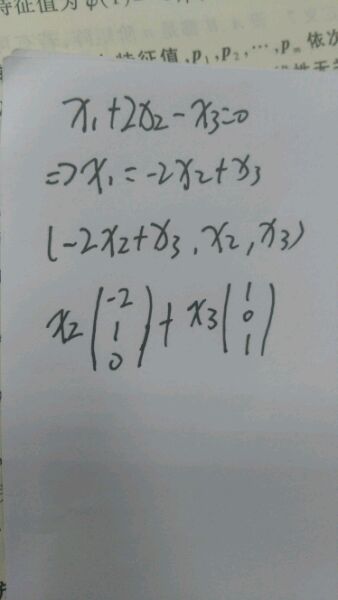 特征值为
特征值,p₁,p₂,⋯,pₘ 依次
x₁+2x₂-x₃=0
=>x₁=-2x₂+x₃
(-2x₂+x₃,x₂,x₃)
x₂(-2 1 0)+x₃(1 0 1)